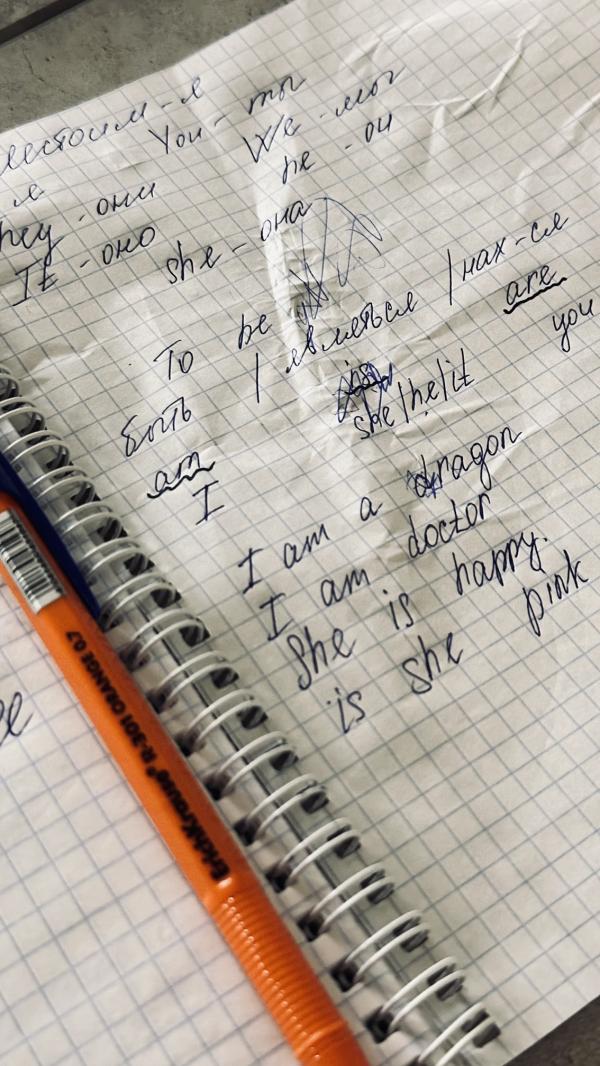 местоим-я
You - ты We - мы
they - они he - он
It - оно she - она
To be
быть / являться / нах-ся
am is are
I she/he/it you
I am a dragon
I am doctor
She is happy.
is she pink
ErichKrause® R-301 ORANGE 0.7